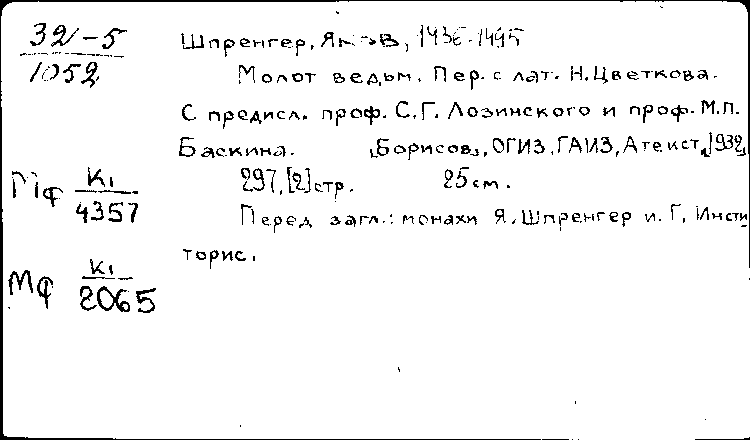 32-5
1052
Шпренгер, Яков, 1436-1495
Молот ведьм. Пер. с лат. Н. Цветкова.
С предисл. проф. С.Г. Лозинского и проф. М.П.
Баскина. [Борисов], ОГИЗ, ГАИЗ, Атеист, [1932]
297, [2] стр. 25 см.
Мф К1
4357
Перед загл.: монахи Я. Шпренгер и Г. Инсти
торис.
Мф К1
2065